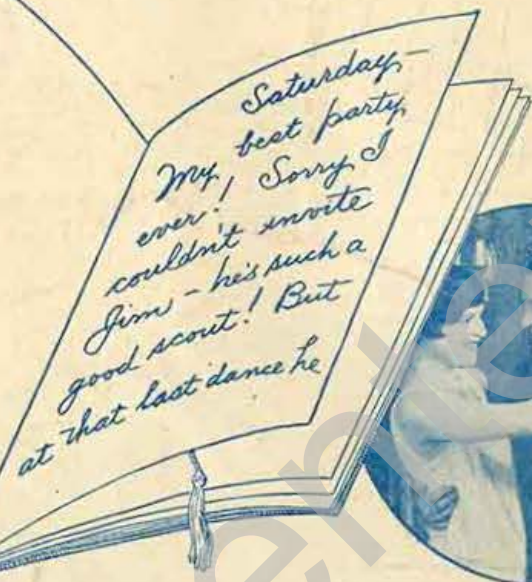 Saturday—
My best party
ever! Sorry I
couldn't invite
Jim — he's such a
good scout! But
at that last dance he